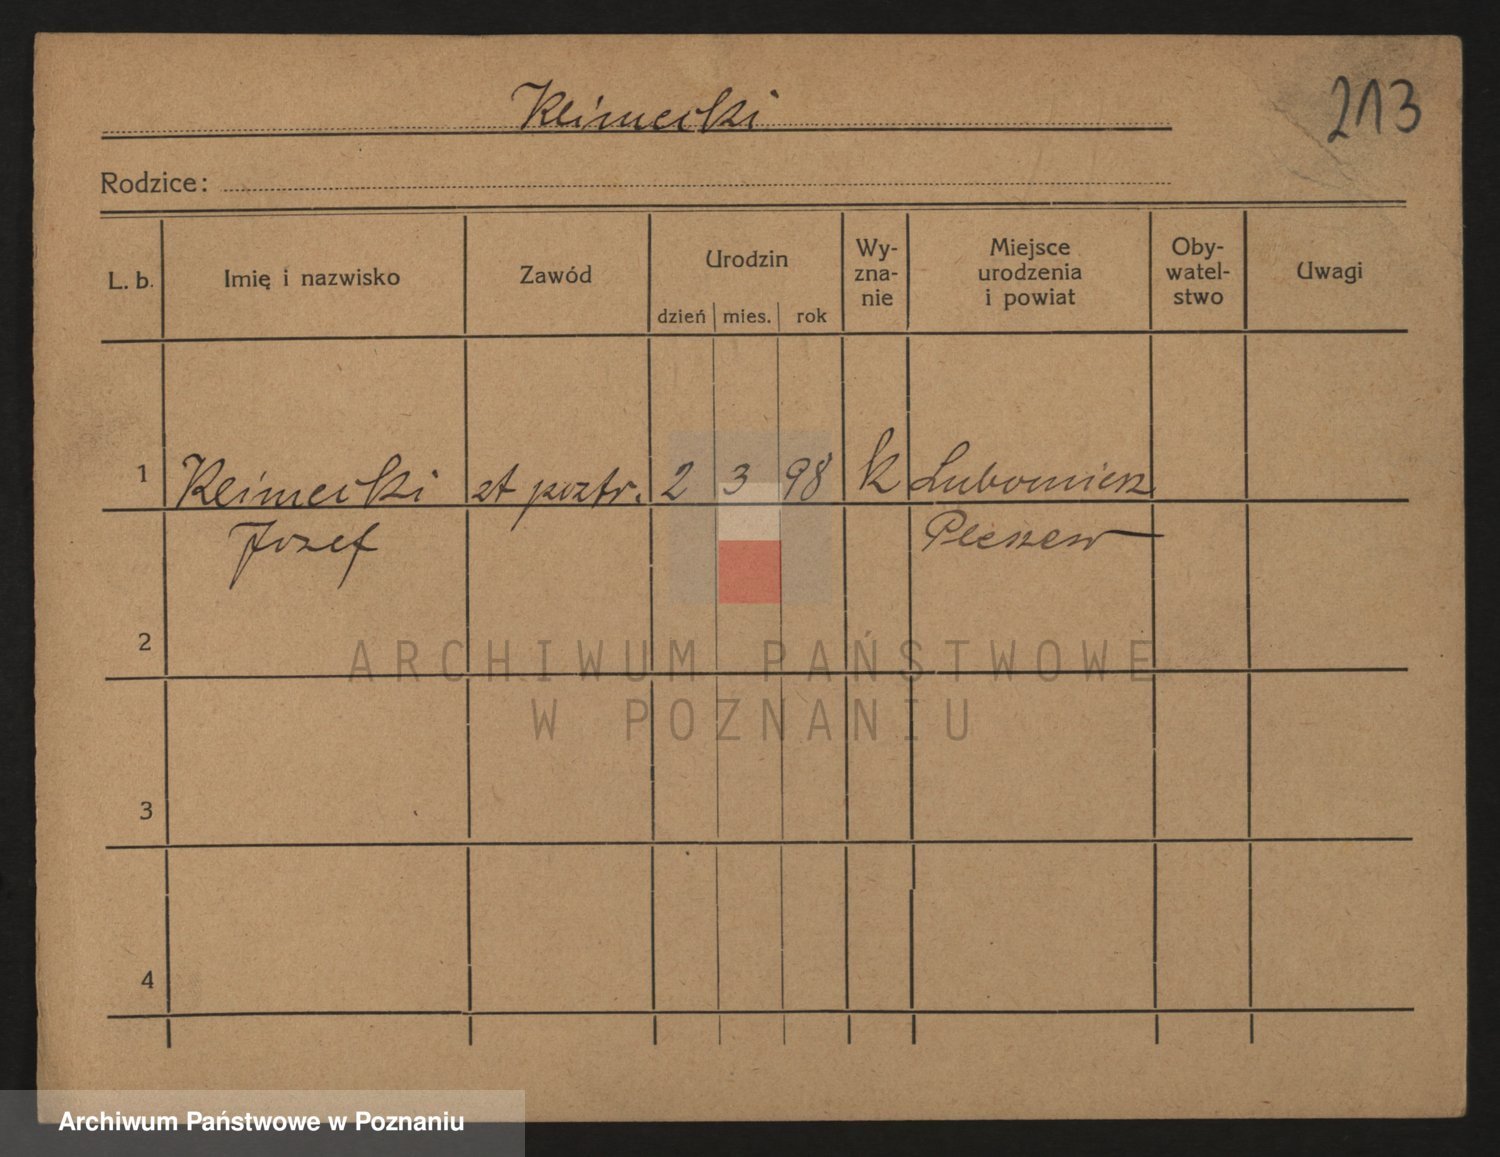 Klimecki
213
Rodzice:
L. b.
Imię i nazwisko
Zawód
Urodzin
dzień
mies.
rok
Wy-
zna-
nie
Miejsce
urodzenia
i powiat
Oby-
watel-
stwo
Uwagi
1
Klimecki st posztr. 2 3 98 k Lubomierz
Józef Pleszew
2
3
4
ARCHIWUM PAŃSTWOWE
W POZNANIU
Archiwum Państwowe w Poznaniu